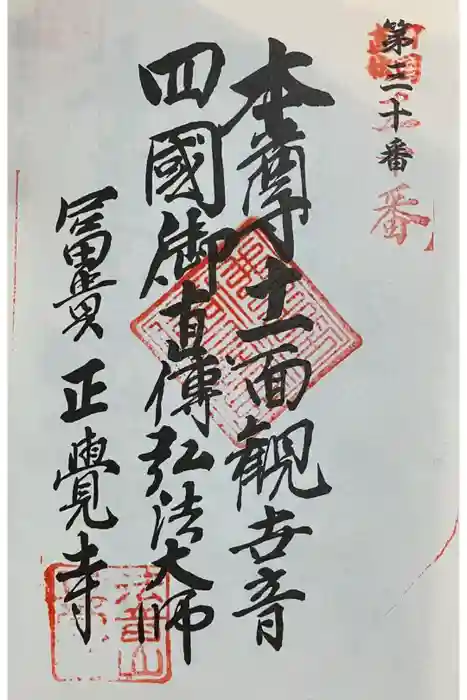 第三十番
本尊十一面観世音
四國御直傳弘法大師
冨貴正覺寺